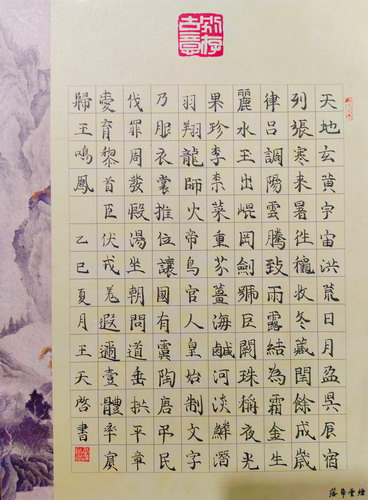 別存古意
天地玄黃宇宙洪荒日月盈昃辰宿
列張寒来暑往穐收冬藏閏餘成歲
律吕調陽雲騰致雨露結為霜金生
麗水玉出崐岡劍號巨闕珠稱夜光
果珍李柰菜重芥薑海鹹河淡鱗潛
羽翔龍師火帝鳥官人皇始制文字
乃服衣裳推位讓國有虞陶唐弔民
伐罪周發殷湯坐朝問道垂拱平章
愛育黎首臣伏戎羌遐邇壹體率賓
歸王鳴鳳 乙巳夏月王天啓書